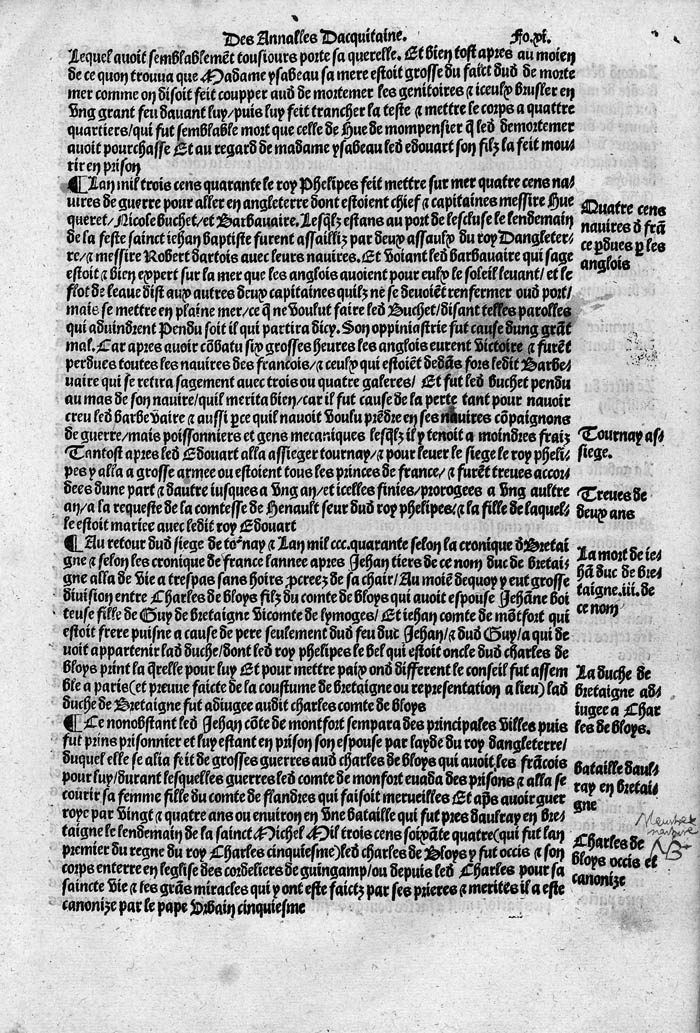 Des Annalles Dacquitaine. Fo.xi.
Lequel auoit semblablemẽt tousiours porte sa querelle. Et bien tost apres au moien
de ce quon trouua que Madame ysabeau sa mere estoit grosse du faict dud de morte
mer comme on disoit feit coupper aud de mortemer les genitoires ⁊ iceulx brusler en
vng grant feu dauant luy/puis luy feit trancher la teste ⁊ mettre le corps a quattre
quartiers/qui fut semblable mort que celle de Hue de mompensier q̃ led demortemer
auoit pourchasse Et au regard de madame ysabeau led edouart son filz la feit mou-
rir en prison
¶ Lan mil trois cens quarante le roy Phelipes feit mettre sur mer quatre cens na-
uires de guerre pour aller en angleterre dont estoient chief ⁊ capitaines messire Hue
queret/Nicole buchet/et Barbauaire. Lesq̃lz estans au port de lescluse le lendemain
de la feste sainct iehan baptiste furent assailliz par deux assaulx du roy Dangleter-
re/⁊ messire Robert dartois auec leurs nauires. Et voiant led barbauaire qui sage
estoit ⁊ bien expert sur la mer que les anglois auoient pour eulx le soleil leuant/ et le
flot de leaue dist aux autres deux capitaines quilz ne se deuoiẽt renfermer oud port/
mais se mettre en plaine mer/ce q̃ ne voulut faire led Buchet/disant telles parolles
qui aduindrent Pendu soit il qui partira dicy. Son oppiniastrie fut cause dung grãt
mal. Car apres auoir cõbatu six grosses heures les anglois eurent victoire ⁊ furẽt
perdues toutes les nauires des francois/⁊ ceulx qui estoiẽt dedãs fors ledit Barbe-
uaire qui se retira sagement auec trois ou quatre galeres/ Et fut led buchet pendu
au mas de son nauire/quil merita bien/car il fut cause de la perte tant pour nauoir
creu led barbeuaire ⁊ aussi p̱ce quil nauoit voulu prẽdre en ses nauires cõpaignons
de guerre/mais poissonniers et gens mecaniques lesq̃lz il y tenoit a moindres fraiz
Tantost apres led Edouart alla assieger tournay/⁊ pour leuer le siege le roy pheli-
pes y alla a grosse armee ou estoient tous les princes de france/⁊ furẽt treues accor-
dees dune part ⁊ dautre iusques a vng an/et icelles finies/prorogees a vng aultre
an/a la requeste de la comtesse de Henault seur dud roy phelipes/⁊ la fille de laquel-
le estoit mariee auec ledit roy Edouart
¶ Au retour dud siege de tor̃nay ⁊ Lan mil ccc.quarante selon la cronique d̃Bretai
gne ⁊ selon les cronique de france lannee apres Jehan tiers de ce nom duc de bretai-
gne alla de vie a trespas sans hoirs p̱creez de sa chair/Au moiẽ dequoy y eut grosse
diuision entre Charles de bloys filz du comte de bloys qui auoit espouse Jehãne boi
teuse fille de Guy de bretaigne vicomte de lymoges/Et iehan comte de mõtfort qui
estoit frere puisne a cause de pere seulement dud feu duc Jehan/⁊ dud Guy/a qui de
uoit appartenir lad duche/dont led roy phelipes le bel qui estoit oncle dud charles de
bloys print la q̃relle pour luy Et pour mettre paix ond different le conseil fut assem
ble a paris(et preuue faicte de la coustume de bretaigne ou representation a lieu) lad
duche de Bretaigne fut adiugee audit charles comte de bloys
¶ Ce nonobstant led Jehan cõte de montfort sempara des principales villes puis
fut prins prisonnier et luy estant en prison son espouse par layde du roy dangleterre/
duquel elle se alia feit de grosses guerres aud charles de bloys qui auoit les frãcois
pour luy/durant lesquelles guerres led comte de monfort euada des prisons ⁊ alla se
courir sa femme fille du comte de flandres qui faisoit merueilles Et ap̃s auoir guer
roye par vingt ⁊ quatre ans ou enuiron en vne bataille qui fut pres daulray en bre-
taigne le lendemain de la sainct Michel Mil trois cens soixãte quatre(qui fut lan
premier du regne du roy Charles cinquiesme)led charles de Bloys y fut occis ⁊ son
corps enterre en leglise des cordeliers de guingamp/ou depuis led Charles pour sa
saincte vie ⁊ les grãs miracles qui y ont este faictz par ses prieres ⁊ merites il a este
canonize par le pape Vrbain cinquiesme
Quatre cens
nauires d̃ frã
ce p̱dues p̱ les
anglois
Tournay as-
siege.
Treues de
deux ans
La mort de ie-
hã duc de bre-
taigne.iii.de
ce nom
La duche de
bretaigne ad-
iugee a Char
les de bloys.
bataille daul-
ray en bretai-
gne
Charles de
bloys occis et
canonize
NB